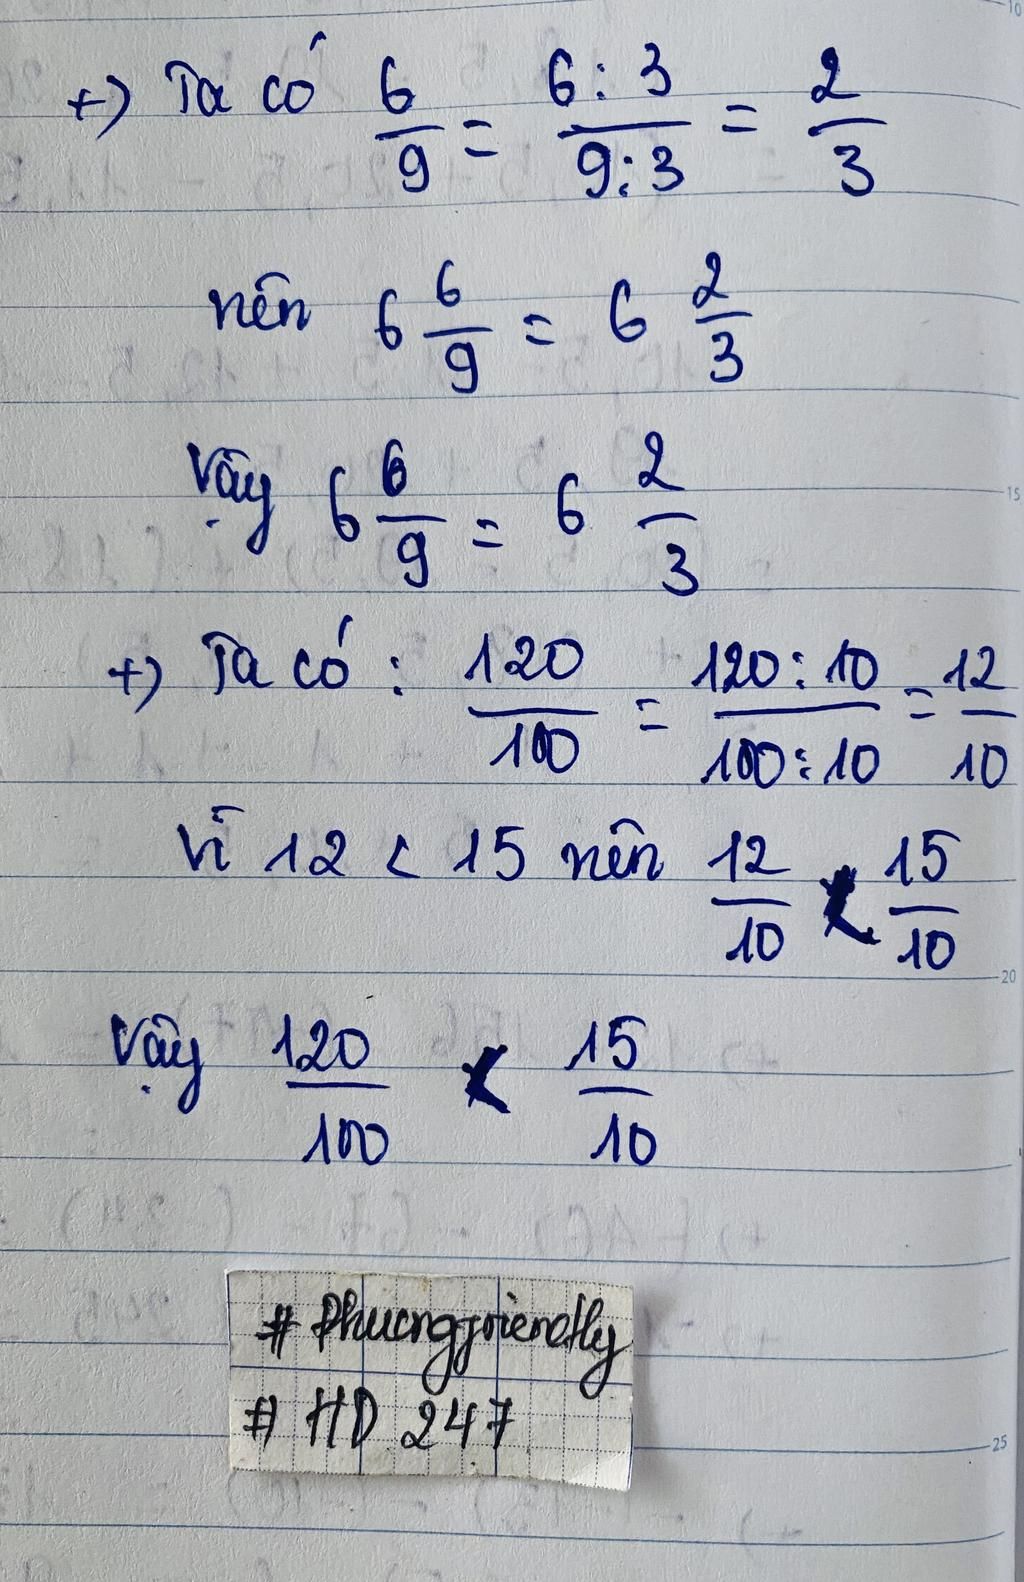 +) Ta có 6/9 = 6:3/9:3 = 2/3
nên 6 6/9 = 6 2/3
Vậy 6 6/9 = 6 2/3
+) Ta có: 120/100 = 120:10/100:10 = 12/10
Vì 12 < 15 nên 12/10 < 15/10
Vậy 120/100 < 15/10
# Phuongfriendly
# HD 247